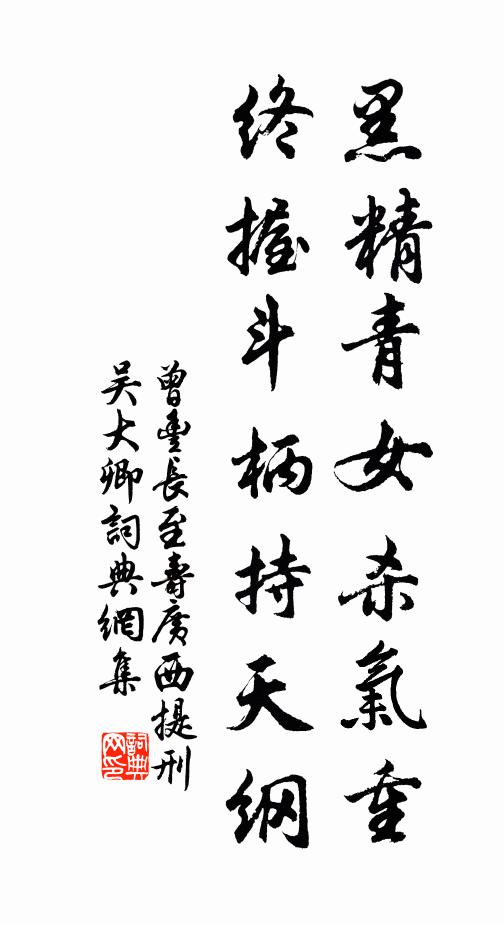 黑精青女杀氣重
终握斗柄持天纲
曾豐長至壽廣西提刑
吴大卿詞典網集
詞典网印